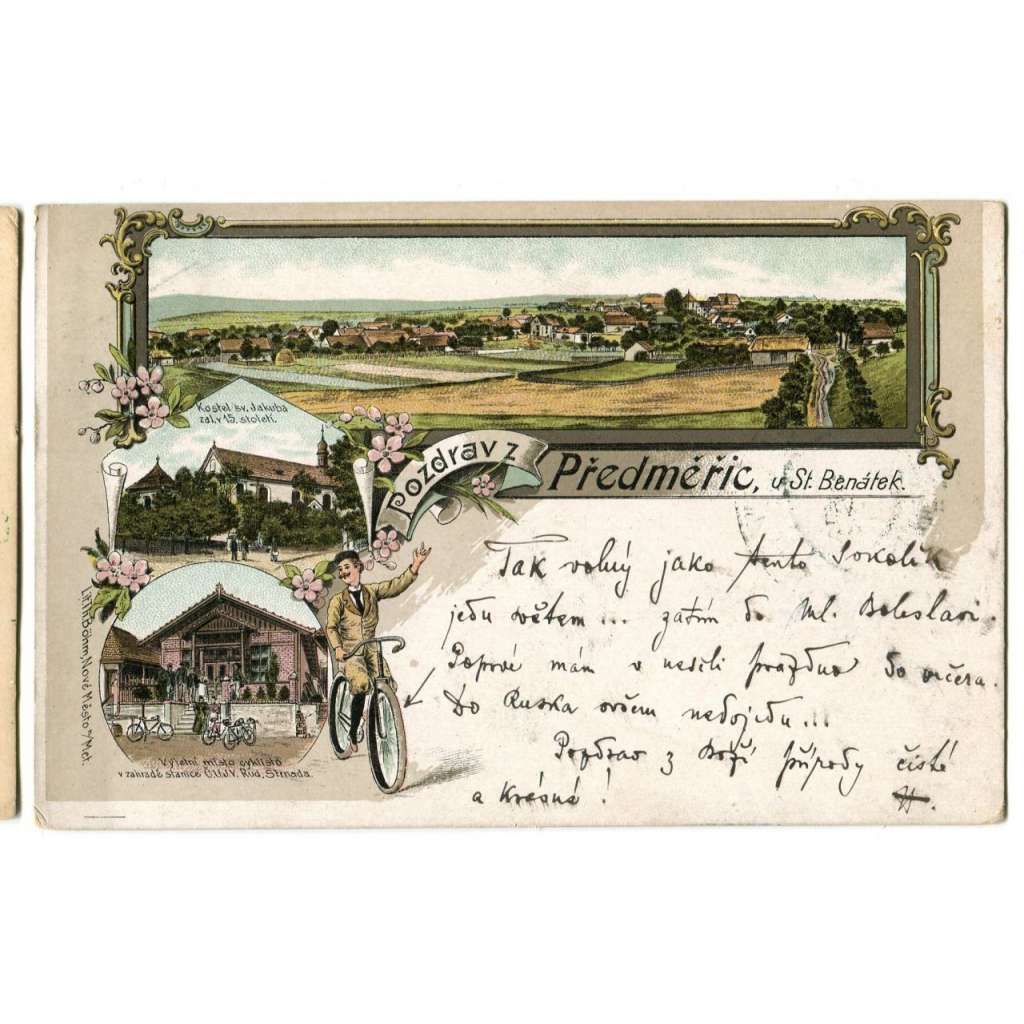 Kostel sv. Jakuba
zal. v 15. století.
Pozdrav z
Předměřic, u St. Benátek.
Tak volný jako tento Sokolík
jedu světem... zatím do Ml. Boleslavi.
Poprvé mám v neděli prázdno do večera.
Do Ruska ovšem nedojedu...
Pozdrav z Boží přírody čisté
a Krásné!
H.
Výletní místo cyklistů
v zahradě stanice Č.Ú.J.V. Rud. Strnada.
Lith. Böhm, Nové Město n/Met.